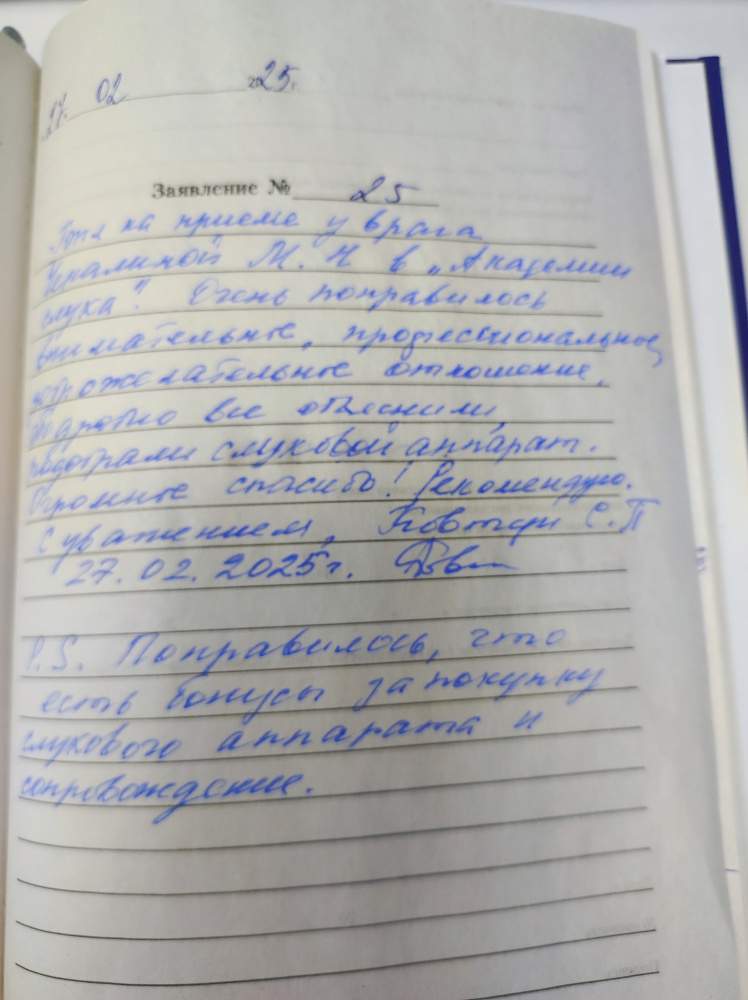 27. 02 2025г.
Заявление № 25
на приеме у врача
М. Н в „Академии
слуха". Очень понравилось
внимательное, профессиональное,
доброжелательное отношение.
все объяснили,
подобрали слуховой аппарат.
Огромное спасибо! Рекомендую.
С уважением, С.П
27.02.2025г.
P.S. Понравилось, что
есть бонусы за покупку
слухового аппарата и
сопровождение.